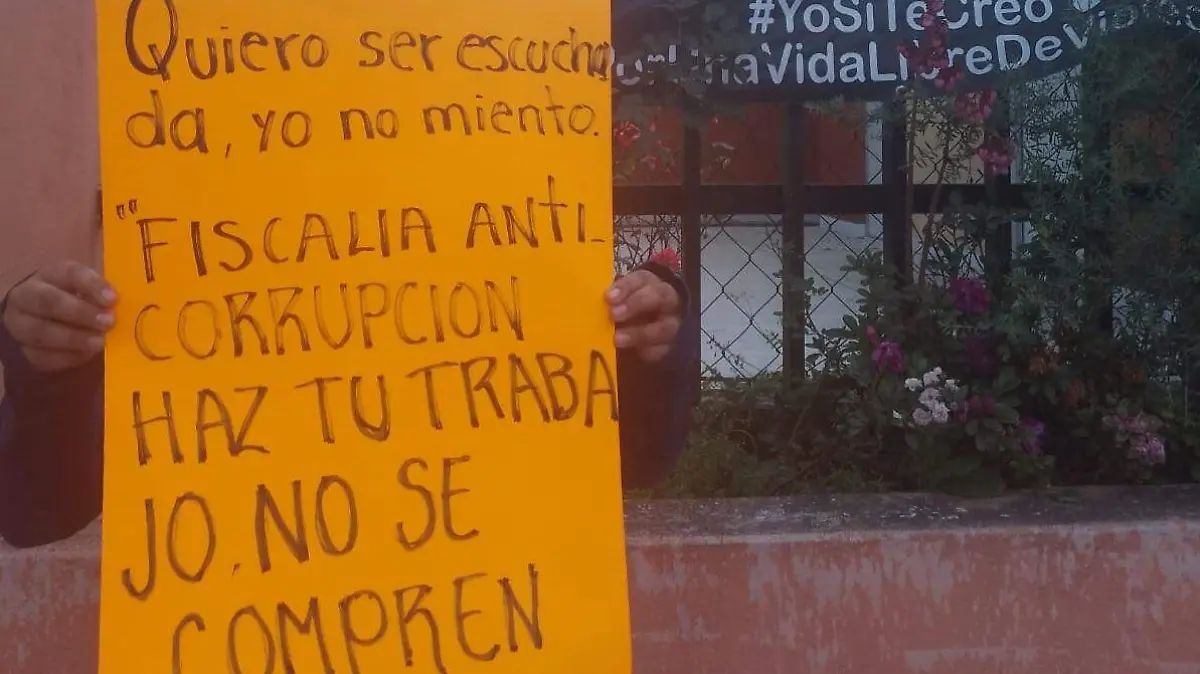 Quiero ser escucha
da, yo no miento.
"FISCALIA ANTI-
CORRUPCION
HAZ TU TRABA
JO. NO SE
COMPREN
#YoSiTeCreo
UnaVidaLibreDeVio